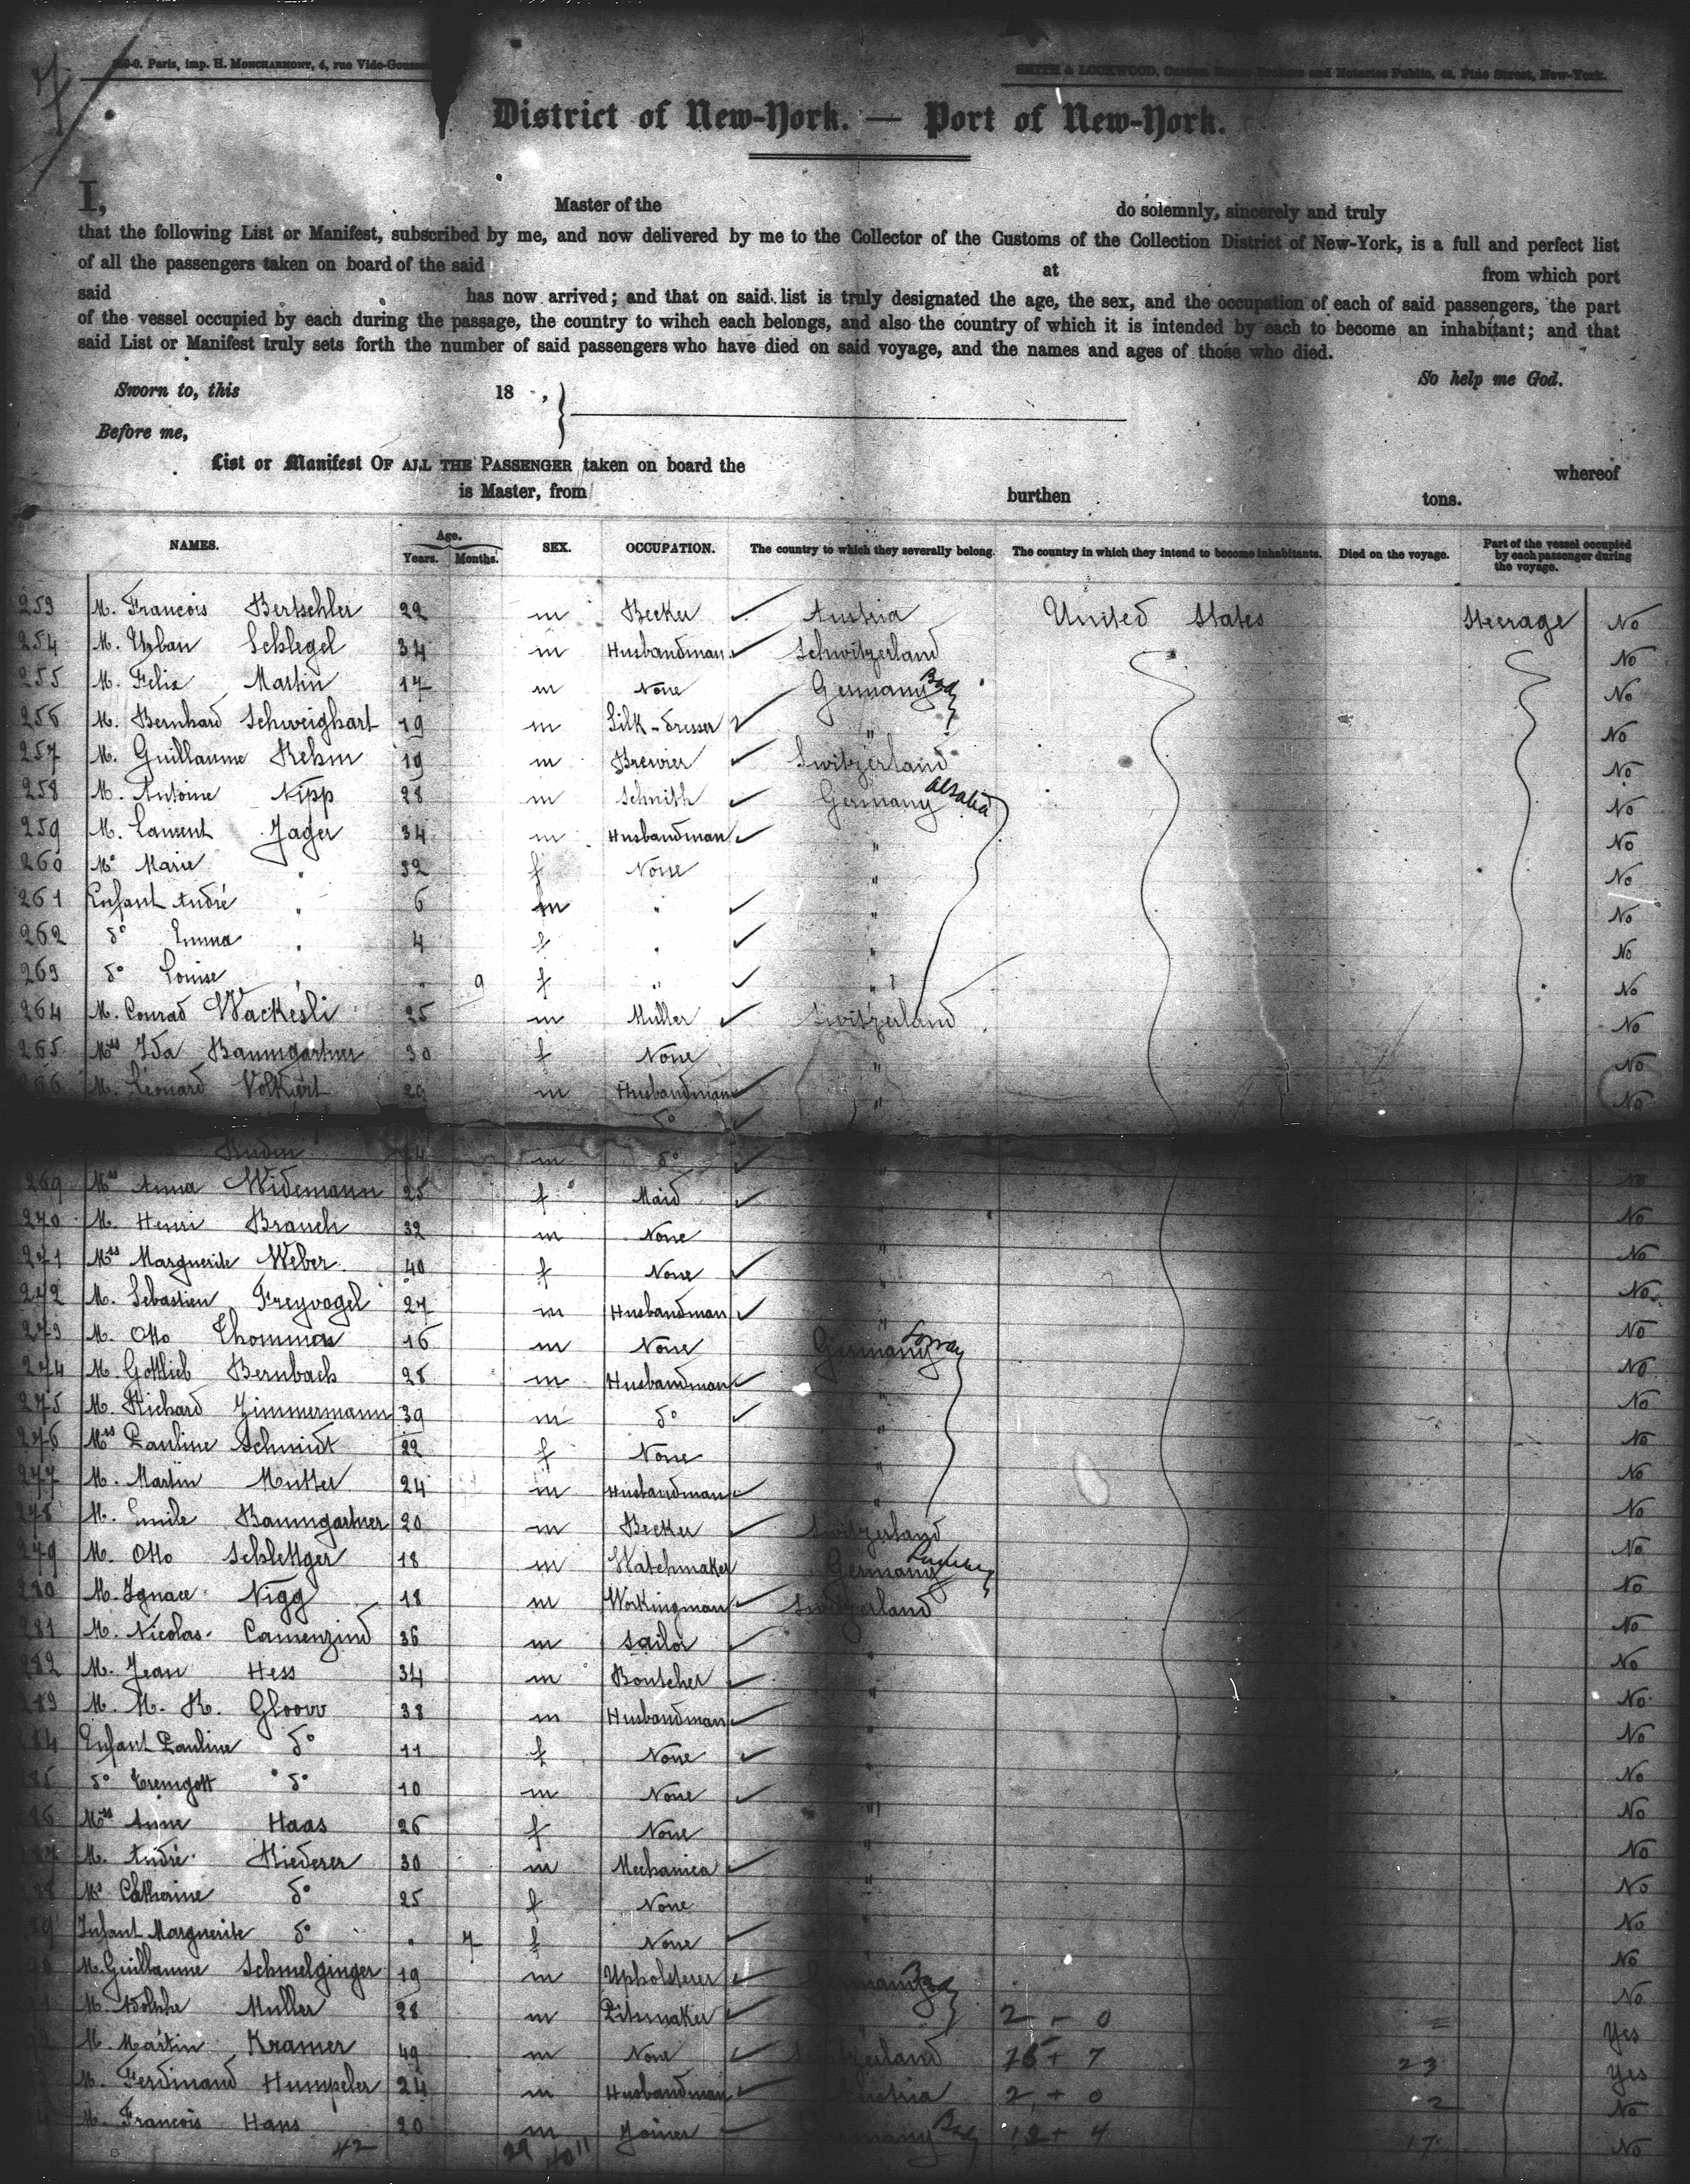 Paris, imp. H. MONCHARMONT, 4, rue Vide-Gousset
SMITH & LOCKWOOD, Custom House Brokers and Notaries Public, Pine Street, New-York.
District of New-York. — Port of New-York.
I, Master of the do solemnly, sincerely and truly
that the following List or Manifest, subscribed by me, and now delivered by me to the Collector of the Customs of the Collection District of New-York, is a full and perfect list
of all the passengers taken on board of the said at from which port
said has now arrived; and that on said list is truly designated the age, the sex, and the occupation of each of said passengers, the part
of the vessel occupied by each during the passage, the country to wihch each belongs, and also the country of which it is intended by each to become an inhabitant; and that
said List or Manifest truly sets forth the number of said passengers who have died on said voyage, and the names and ages of those who died.
So help me God.
Sworn to, this 18 ,
Before me,
List or Manifest OF ALL THE PASSENGER taken on board the whereof
is Master, from burthen tons.
NAMES. Age. Years. Months. SEX. OCCUPATION. The country to which they severally belong. The country in which they intend to become inhabitants. Died on the voyage. Part of the vessel occupied by each passenger during the voyage.
253 M. Francois Bertschler 22 m Becker Austria United States Steerage No
254 M. Urban Schlegel 34 m Husbandman Schwitzerland No
255 M. Felix Martin 17 m None Germany Bad No
256 M. Bernhard Schweighart 19 m Silk-dresser " No
257 M. Guillaume Rehm 19 m Brewier Switzerland No
258 M. Antoine Nipp 28 m Schmith Germany Alsatia No
259 M. Laurent Jager 34 m Husbandman " No
260 Me Marie " 32 f None " No
261 Enfant André " 6 m " " No
262 do Emma " 4 f " " No
263 do Louise " " 9 f " " No
264 M. Conrad Wackerli 25 m Muller Switzerland No
265 Mss Ida Baumgartner 30 f None " No
266 M. Léonard Volkiert 29 m Husbandman " No
do
m do "
269 Mss Anna Widemann 25 f Maid No
270 M. Henri Brauch 32 m None " No
271 Mss Marguerite Weber 40 f None " No
272 M. Sebastien Freyvogel 27 m Husbandman " No
273 M. Otto Thommas 16 m None Germany No
274 M. Gottlieb Bernbach 28 m Husbandman " No
275 M. Richard Zimmermann 39 m do " No
276 Mss Pauline Schmidt 22 f None " No
277 M. Martin Mutter 24 m Husbandman " No
278 M. Emile Baumgartner 20 m Becker Switzerland No
279 M. Otto Schlettger 18 m Watchmaker Germany No
280 M. Ignace Nigg 18 m Workingman Switzerland No
281 M. Nicolas Camenzind 36 m Sailor " No
282 M. Jean Hess 34 m Boutcher " No
283 M. M. K. Gloor 38 m Husbandman " No
84 Enfant Pauline do 11 f None " No
85 do do 10 m None " No
86 Mss Anne Haas 26 f None " No
87 M. André Riederer 30 m Mechanica " No
88 Me Catherine do 25 f None " No
89 Infant Marguerite do " 7 f None " No
M. Guillaume Schmelzinger 19 m Upholsterer Germany Bad No
M. Adolphe Muller 28 m " 2 - 0 Yes
M. Martin Kramer 49 m None Switzerland 16 + 7 23 Yes
M. Ferdinand Humpeler 24 m Husbandman Austria 2 + 0 2 No
M. Francois Hans 20 m Joiner Germany Bad 12 + 4 17 No
42 29 11